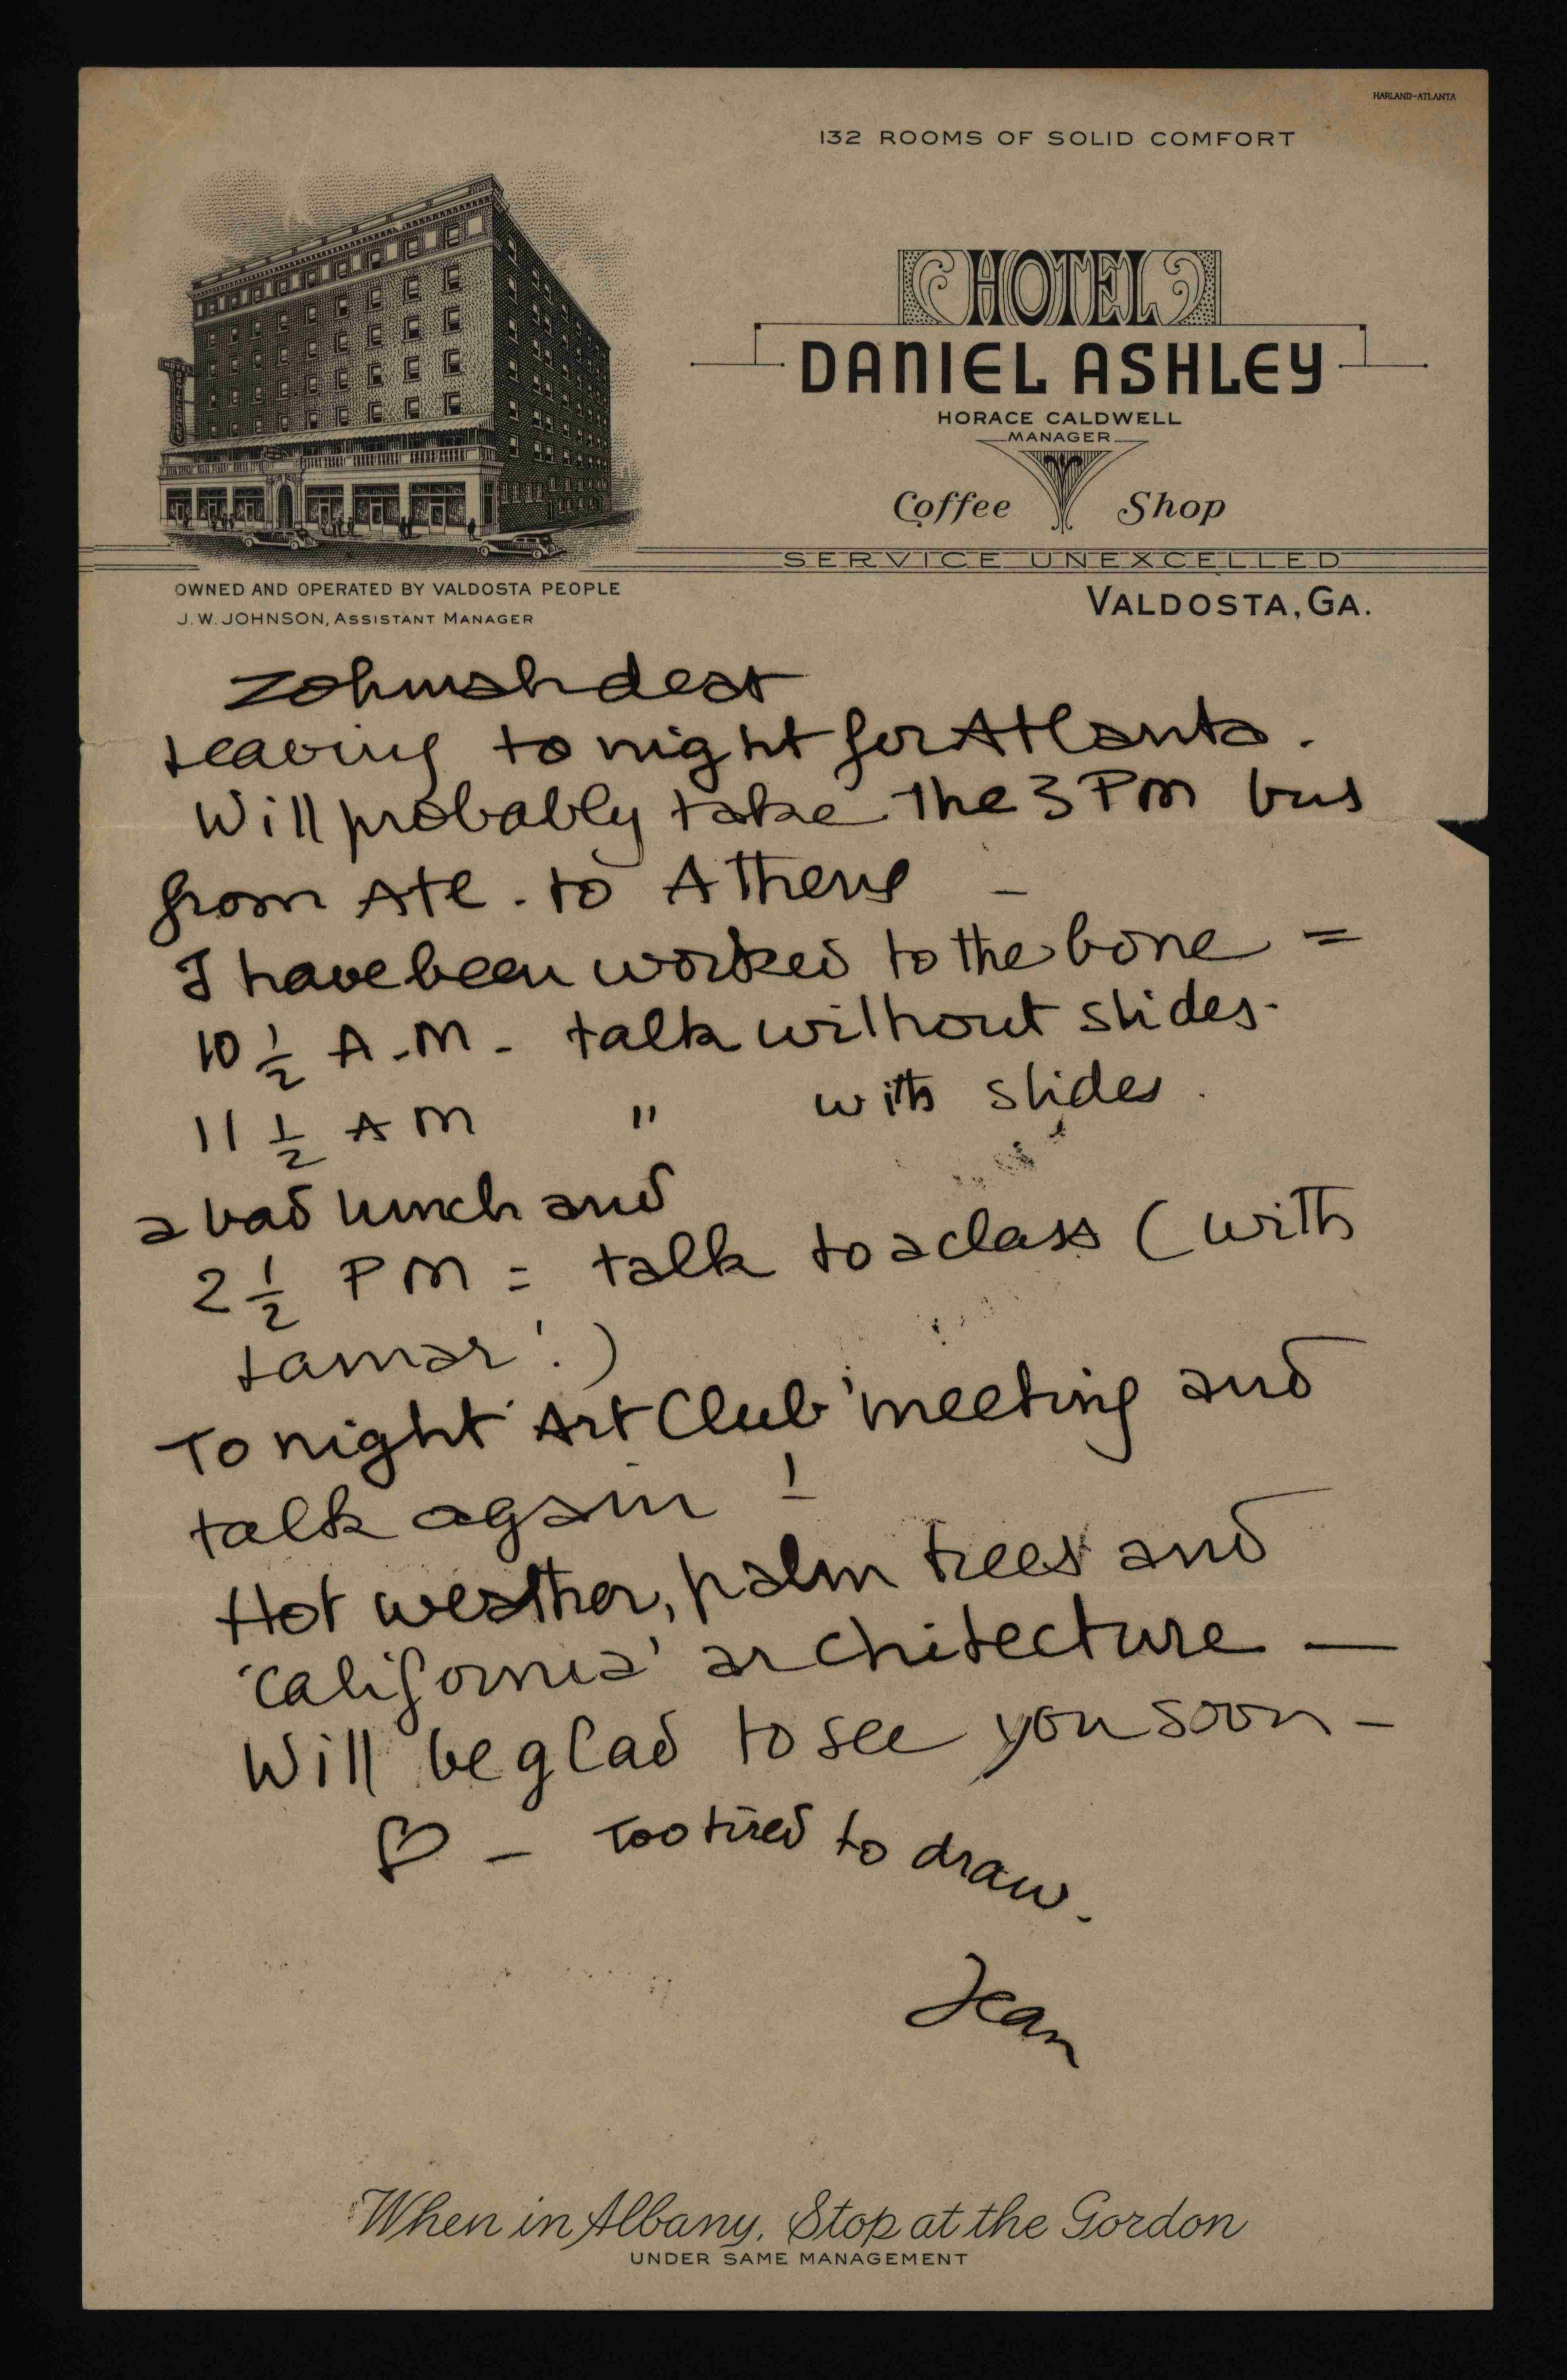 HARLAND-ATLANTA
132 ROOMS OF SOLID COMFORT
HOTEL
DANIEL ASHLEY
HORACE CALDWELL
MANAGER
Coffee Shop
SERVICE UNEXCELLED
OWNED AND OPERATED BY VALDOSTA PEOPLE
J. W. JOHNSON, ASSISTANT MANAGER
VALDOSTA, GA.
Zohmah dear
Leaving to night for Atlanta.
Will probably take the 3 PM bus
from Atl. to Athens –
I have been worked to the bone =
10 1/2 A.M. - talk without slides -
11 1/2 AM " with slides.
a bad lunch and
2 1/2 PM = talk to a class (with
tamar!)
To night 'Art Club' meeting and
talk again !
Hot weather, palm trees and
'California' architecture —
Will be glad to see you soon –
♡ – Too tired to draw.
Jean
When in Albany, Stop at the Gordon
UNDER SAME MANAGEMENT